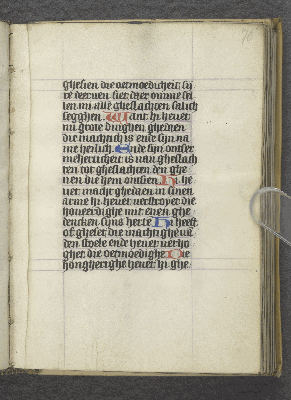 ghesien die oetmoedicheit sij
re deernen siet daer omme sel
len mi alle gheslachten salich
segghen. Want hi heuet
mi grote dinghen ghedaen
die machtich is ende sijn na
me heilich. Ende sijn ontfer
meherticheit is van gheslach
ten tot gheslachten den ghe
nen die hem ontsien Hi he
uet macht ghedaen in sinen
arme hi heuet verstroyet die
houeerdighe mit enen ghe
dencken sijns herte Hi heeft
of gheset die machtighe va
den stoele ende heuet verho
ghet die oetmoedighe Die
hongherighe heuet hi ghe